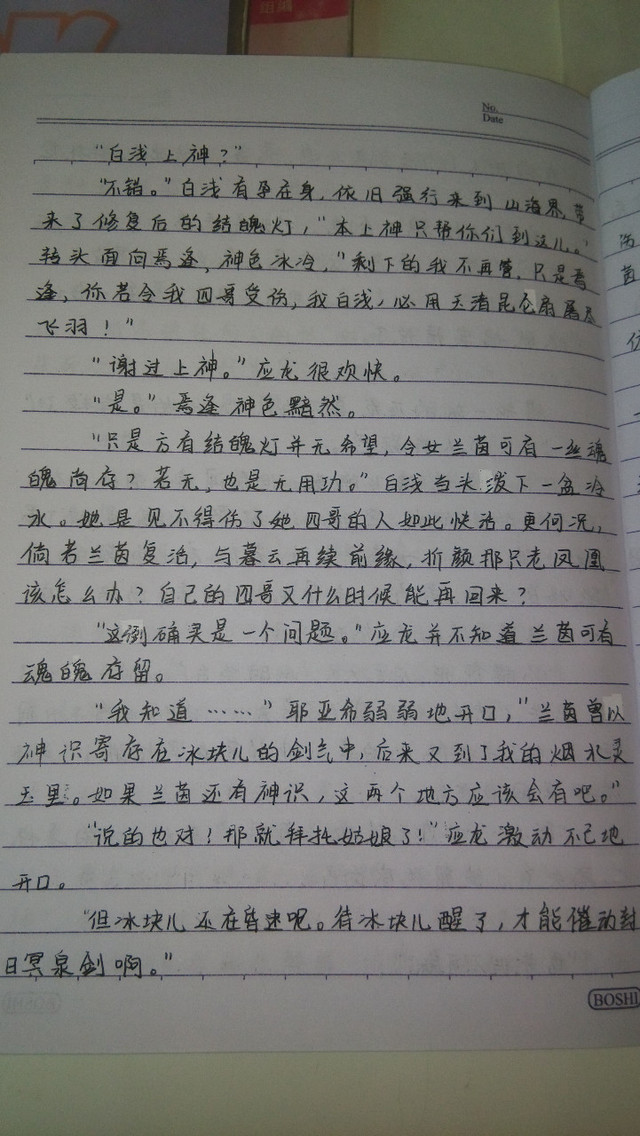 No.
Date
“白浅上神？”
“不错。”白浅有孕在身，依旧强行来到山海界，带
来了修复后的结魄灯，“本上神只帮你们到这儿。”
转头面向焉逢，神色冰冷，“剩下的我不再管。只是焉
逢，你若令我四哥受伤，我白浅，必用玉清昆仑扇屠尽
飞羽！”
“谢过上神。”应龙很欢快。
“是。”焉逢神色黯然。
“只是方有结魄灯并无希望，令女兰茵可有一丝魂
魄尚存？若无，也是无用功。”白浅当头泼下一盆冷
水。她是见不得伤了她四哥的人如此快活。更何况，
倘若兰茵复活，与暮云再续前缘，折颜那只老凤凰
该怎么办？自己的四哥又什么时候能再回来？
“这倒确实是一个问题。”应龙并不知道兰茵可有
魂魄存留。
“我知道……”耶亚希弱弱地开口，“兰茵曾以
神识寄存在冰块儿的剑气中，后来又到了我的烟水灵
玉里。如果兰茵还有神识，这两个地方应该会有吧。”
“说的也对！那就拜托姑娘了！”应龙激动不已地
开口。
“但冰块儿还在昏迷呢。待冰块儿醒了，才能催动封
日冥泉剑啊。”
BOSHI